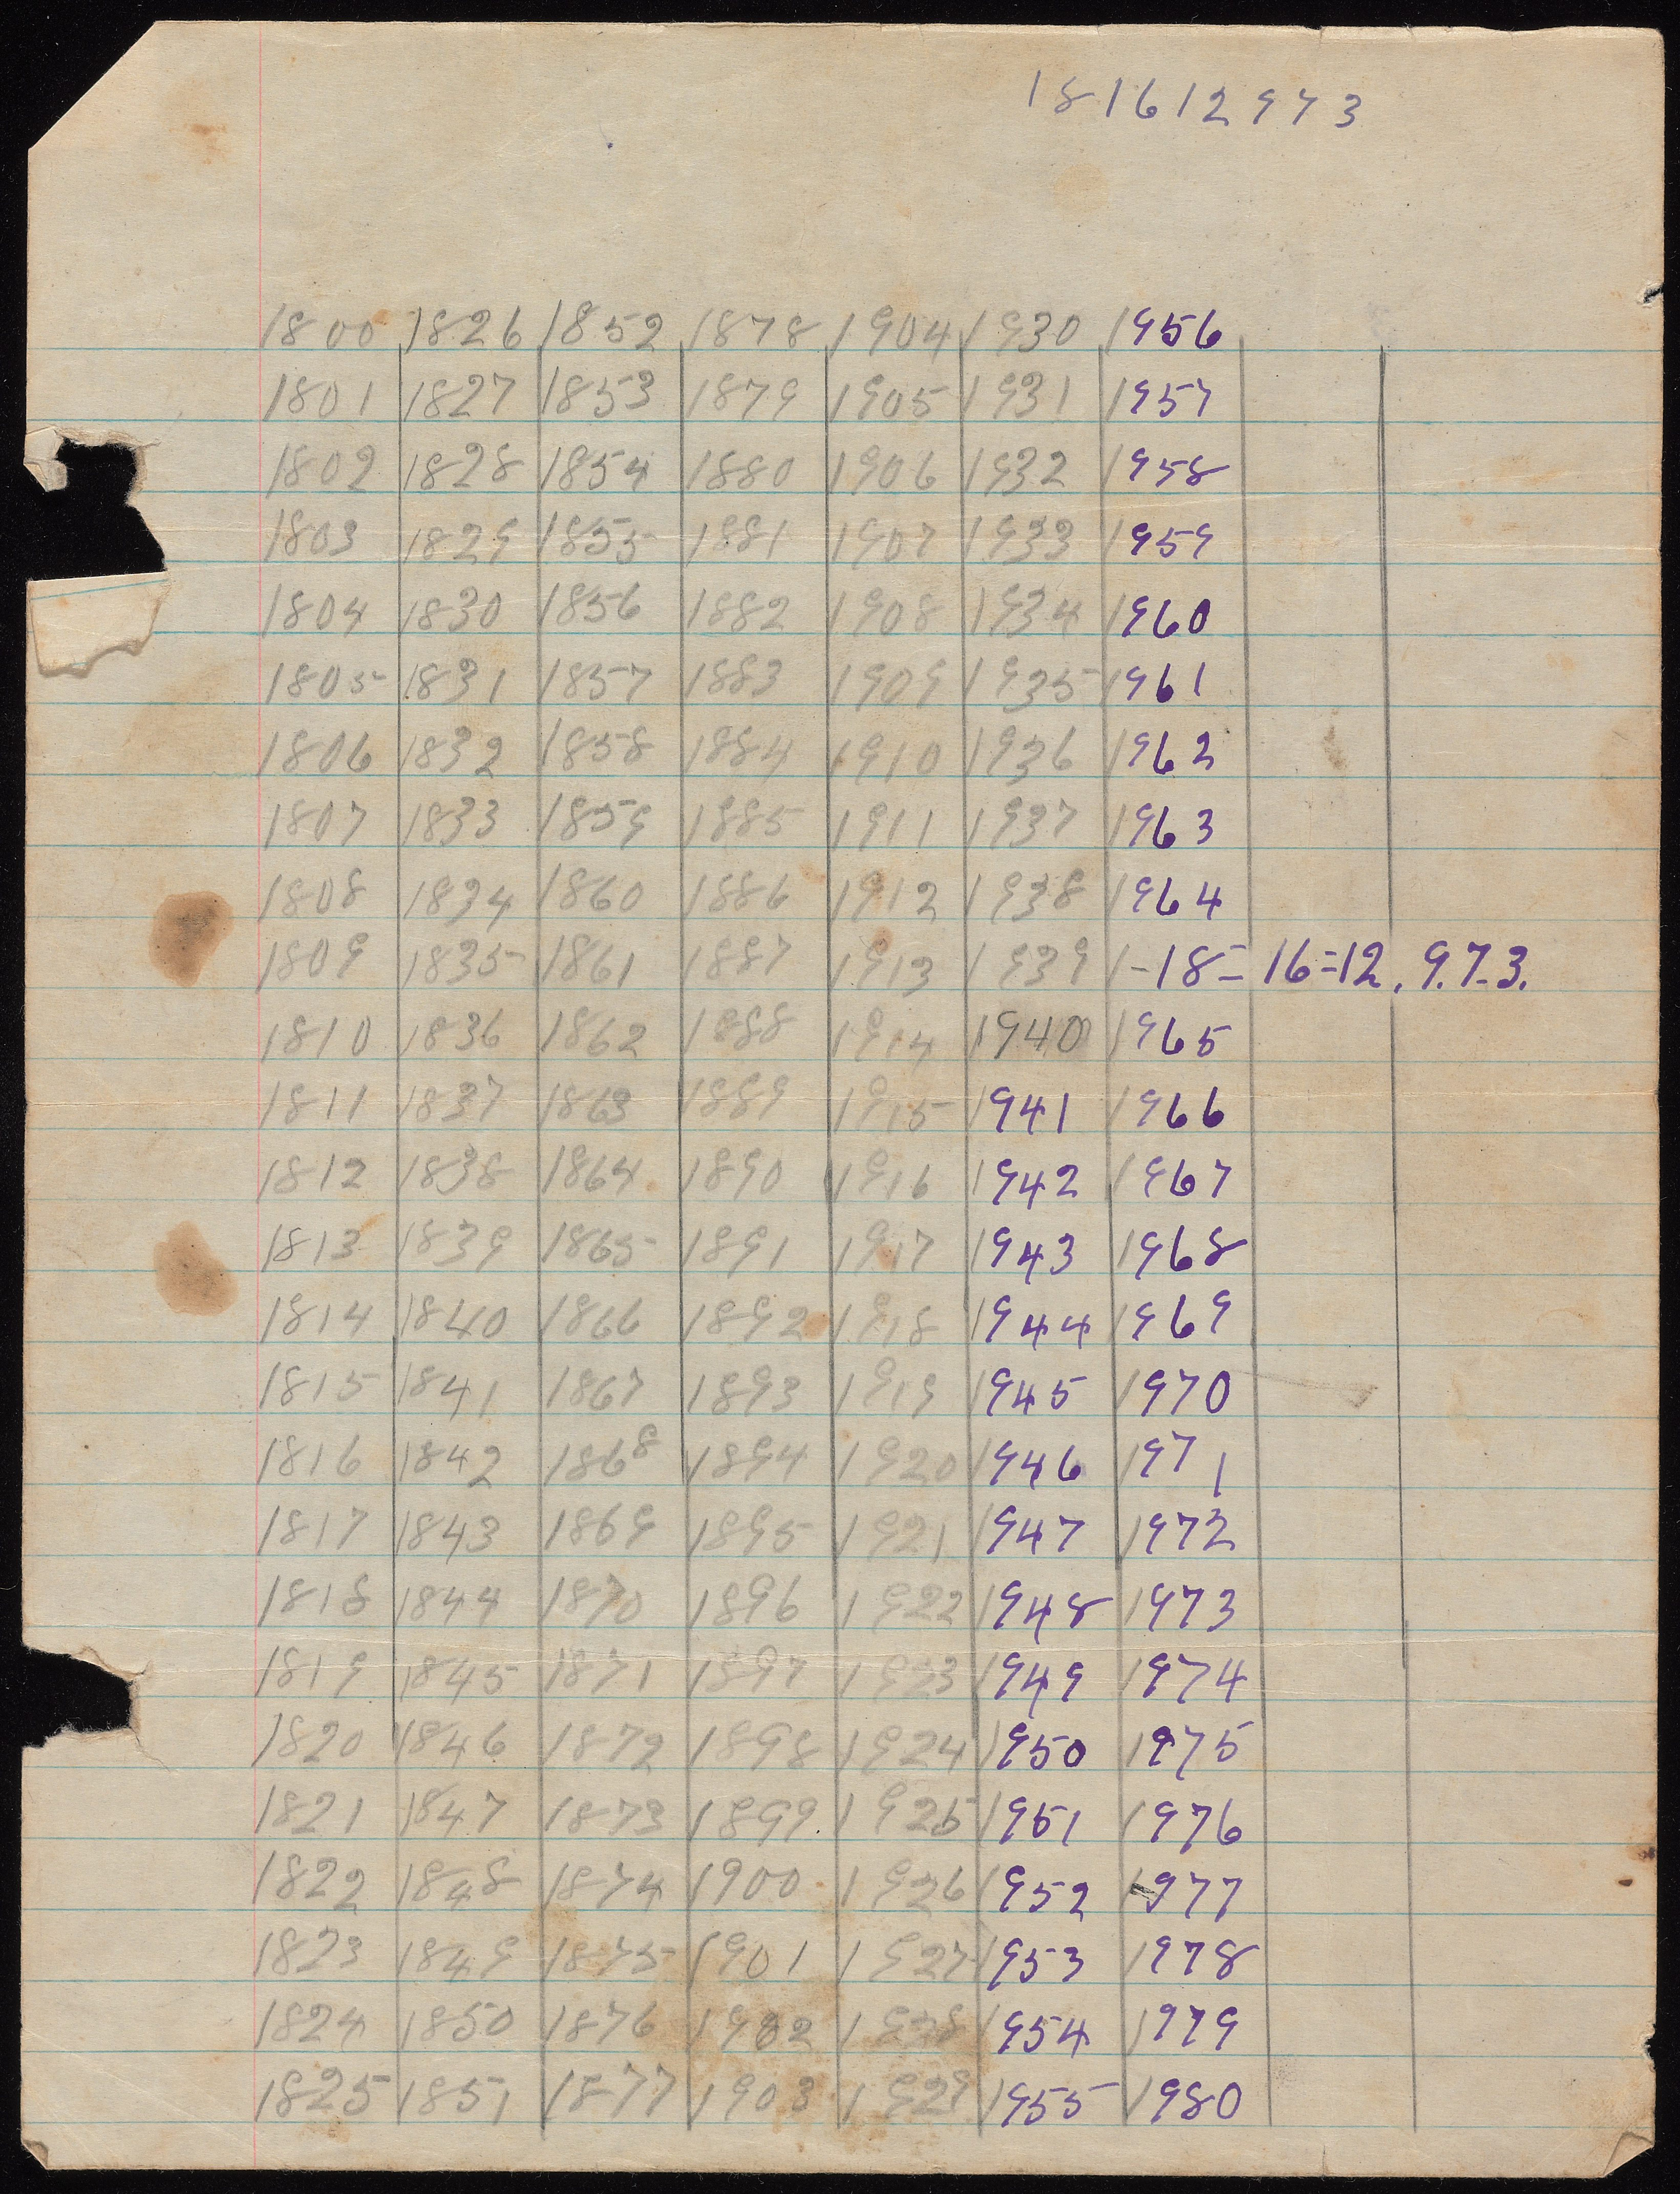 181612973
1800 1826 1852 1878 1904 1930 1956
1801 1827 1853 1879 1905 1931 1957
1802 1828 1854 1880 1906 1932 1958
1803 1829 1855 1881 1907 1933 1959
1804 1830 1856 1882 1908 1934 1960
1805 1831 1857 1883 1909 1935 1961
1806 1832 1858 1884 1910 1936 1962
1807 1833 1859 1885 1911 1937 1963
1808 1834 1860 1886 1912 1938 1964
1809 1835 1861 1887 1913 1939 1-18= 16=12. 9.7.3.
1810 1836 1862 1888 1914 1940 1965
1811 1837 1863 1889 1915 1941 1966
1812 1838 1864 1890 1916 1942 1967
1813 1839 1865 1891 1917 1943 1968
1814 1840 1866 1892 1918 1944 1969
1815 1841 1867 1893 1919 1945 1970
1816 1842 1868 1894 1920 1946 1971
1817 1843 1869 1895 1921 1947 1972
1818 1844 1870 1896 1922 1948 1973
1819 1845 1871 1897 1923 1949 1974
1820 1846 1872 1898 1924 1950 1975
1821 1847 1873 1899 1925 1951 1976
1822 1848 1874 1900 1926 1952 1977
1823 1849 1875 1901 1927 1953 1978
1824 1850 1876 1902 1928 1954 1979
1825 1851 1877 1903 1929 1955 1980